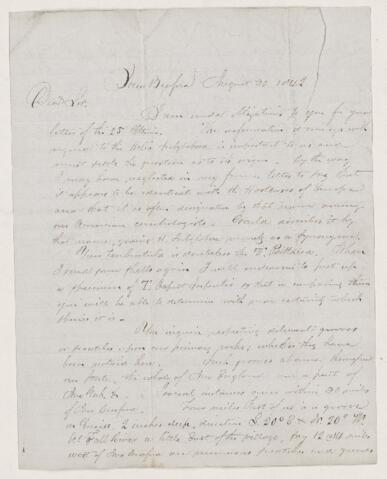 New Bedford August 30 1842
Dear Sir.
I am under obligations to you for your
letter of the 25 Ultimo. The information it conveys with
regard to the Helix subglobosa is important to us and
must settle the question as to its origin. By the way
I may have neglected in my former letter to say that
it appears to be identical with the Hortensis of Europe
and that it is often designated by that name among
our American conchologists. Gould admits it by
that name, giving H. subglobosa merely as a synonym.
Your tenebricula is doubtless the T.
some shells again I will endeavour to put up
a specimen of T. so that in comparing them
you will be able to determine with more certainty which
species it is.
You inquire respecting diluvial grooves
or scratches upon our primary rocks, whether they have
been noticed here. Such grooves abound throughout
our State, the whole of New England and a part of
New York &c. Several instances occur within 20 miles
of New Bedford. Four miles East of us is a groove
in Gneiss, 2 inches deep, direction S. 20° E & N. 20° W.
At Fall River a little East of the village, say 12 miles
west of New Bedford are numerous scratches and grooves